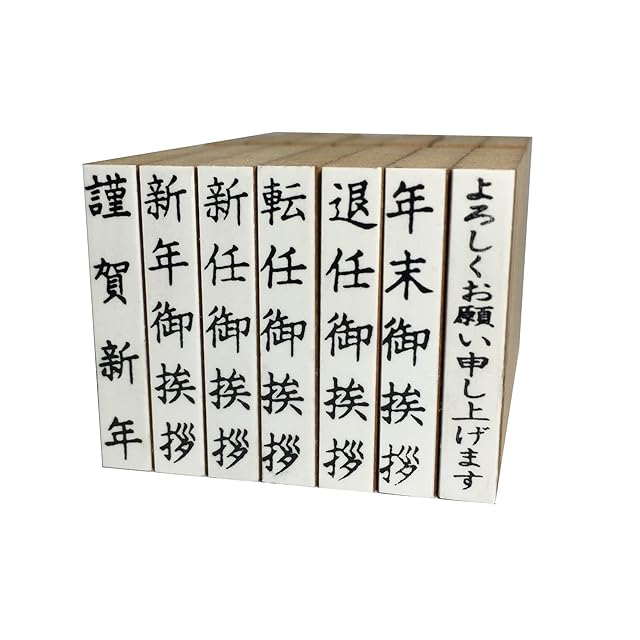 謹賀新年
新年御挨拶
新任御挨拶
転任御挨拶
退任御挨拶
年末御挨拶
よろしくお願い申し上げます